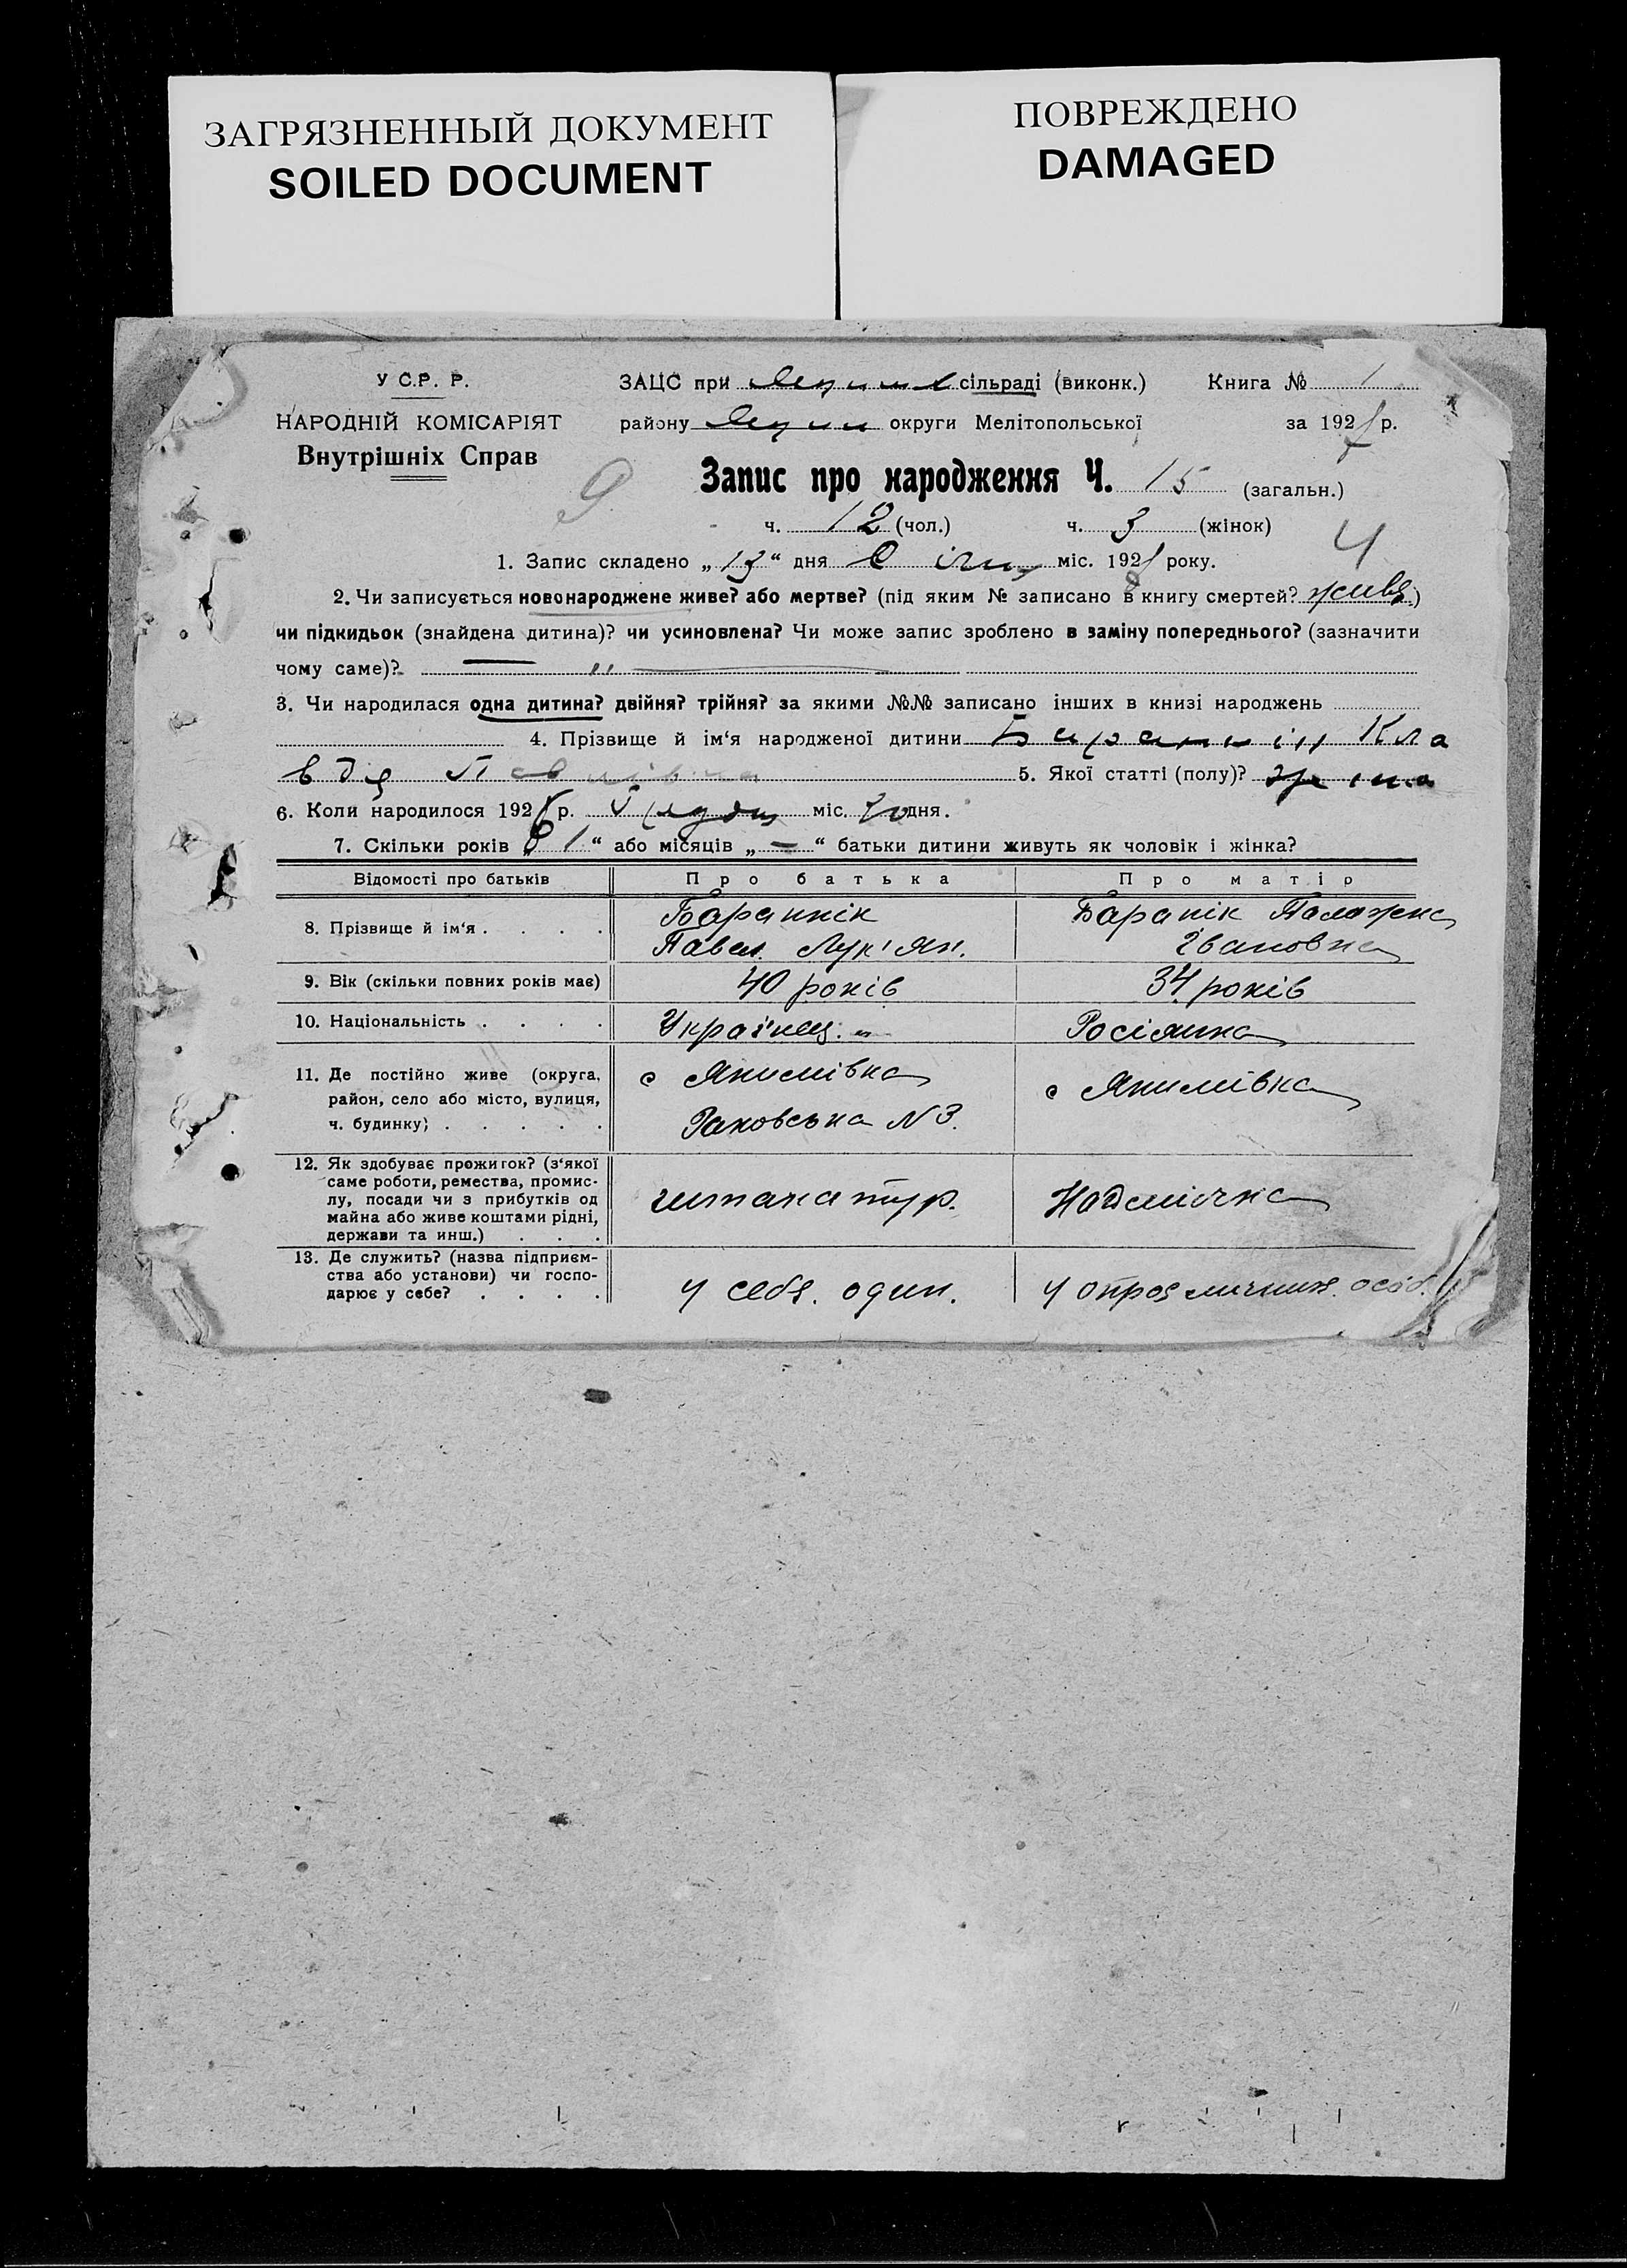 ЗАГРЯЗНЕННЫЙ ДОКУМЕНТ
SOILED DOCUMENT
ПОВРЕЖДЕНО
DAMAGED
У С.Р. Р.
НАРОДНІЙ КОМІСАРІЯТ
Внутрішніх Справ
ЗАЦС при сільраді (виконк.) Книга № 1
району округи Мелітопольської за 192 р.
9
Запис про народження Ч. 15 (загальн.)
ч. 12 (чол.) ч. 3 (жінок)
4
1. Запис складено „13“ дня Січня міс. 192 року.
2. Чи записується новонароджене живе? або мертве? (під яким № записано в книгу смертей? живе)
чи підкидьок (знайдена дитина)? чи усиновлена? Чи може запис зроблено в заміну попереднього? (зазначити
чому саме)? — „ —
3. Чи народилася одна дитина? двійня? трійня? за якими №№ записано інших в книзі народжень
4. Прізвище й ім‘я народженої дитини Баранник Кла
вдя Павлівна 5. Якої статті (полу)? жіноча
6. Коли народилося 192 р. Грудня міс. 20 дня.
7. Скільки років „ 1 “ або місяців „ — “ батьки дитини живуть як чоловік і жінка?
Відомості про батьків Про батька Про матір
8. Прізвище й ім‘я . . . . Бараннік Павел Лук'ян. Баранік Палажка Івановна
9. Вік (скільки повних років має) 40 років 34 років
10. Національність . . . . Українец. „ Росіянка
11. Де постійно живе (округа, район, село або місто, вулиця, ч. будинку) . . . . . с Якимівка Раковська N 3. с Якимівка
12. Як здобуває прожиток? (з‘якої саме роботи, ремества, промислу, посади чи з прибутків од майна або живе коштами рідні, держави та инш.) . . . штакатур. Надомічна
13. Де служить? (назва підприємства або установи) чи господарює у себе? . . . . у себя. один. у осоо.